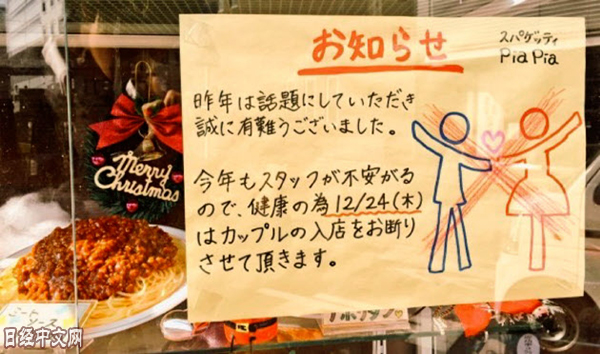 お知らせ
スパゲッティ
PiaPia
昨年は話題にしていただき
誠に有難うございました。
今年もスタッフが不安がる
ので、健康の為12/24(木)
はカップルの入店をお断り
させて頂きます。
Merry
Christmas
日经中文网